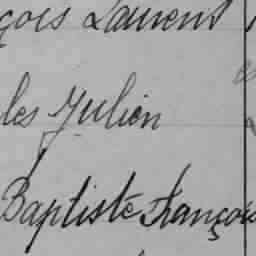 çois Laurent
les Julien
Baptiste François